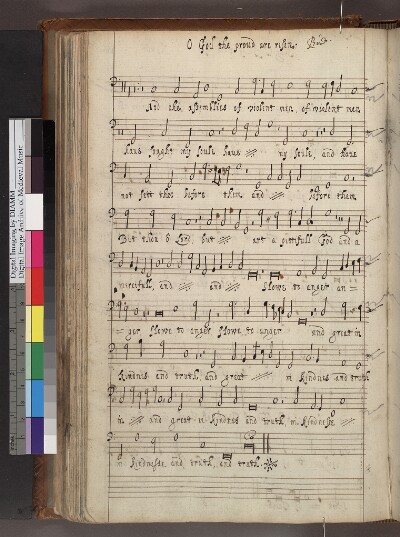 O God the proud are risen. Bird.
And the assemblies of violent men, of violent men
have sought my soule have my soule, and have
not sett thee before them and before them
But thou ô Lord but art a pittifull God and a
mercifull, and and Slowe to anger an=
=ger Slowe to anger Slowe to anger and great in
Kindnes and truth, and great in Kindnes and truth
in and great in Kindnes and truth, in Kindnesse
in Kindnesse, and truth, and truth.
Digital Imaging by DIAMM
Digital Image Archive of Medieval Music